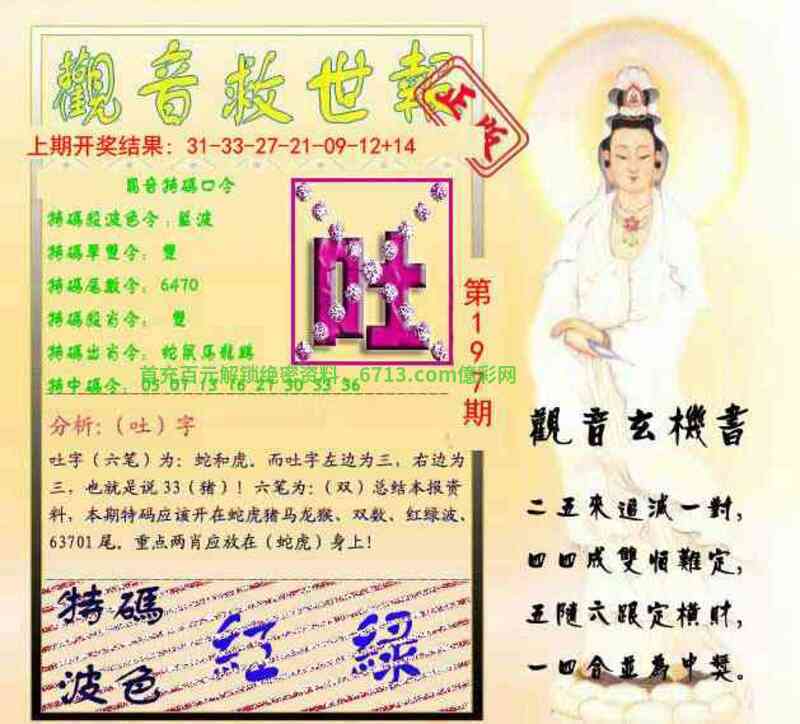 觀音救世報
正版
上期开奖结果：31-33-27-21-09-12+14
觀音特碼口令
特碼殺波色令：藍波
特碼單雙令：雙
特碼尾數令：6470
特碼殺肖令：雙
特碼出肖令：蛇鼠馬龍鷄
特中碼令：05 07 13 16 27 30 33 36
首充百元解鎖绝密資料，6713.com億彩网
吐
第197期
分析：（吐）字
吐字（六笔）为：蛇和虎。而吐字左边为三，右边为
三，也就是说33（猪）！六笔为：（双）总结本报资
料，本期特码应该开在蛇虎猪马龙猴、双数、红绿波、
63701尾。重点两肖应放在（蛇虎）身上！
特碼
波色
紅 綠
觀音玄機書
二五來追減一對，
四四成雙恒難定，
五隨六跟定橫財，
一四合並為中獎。